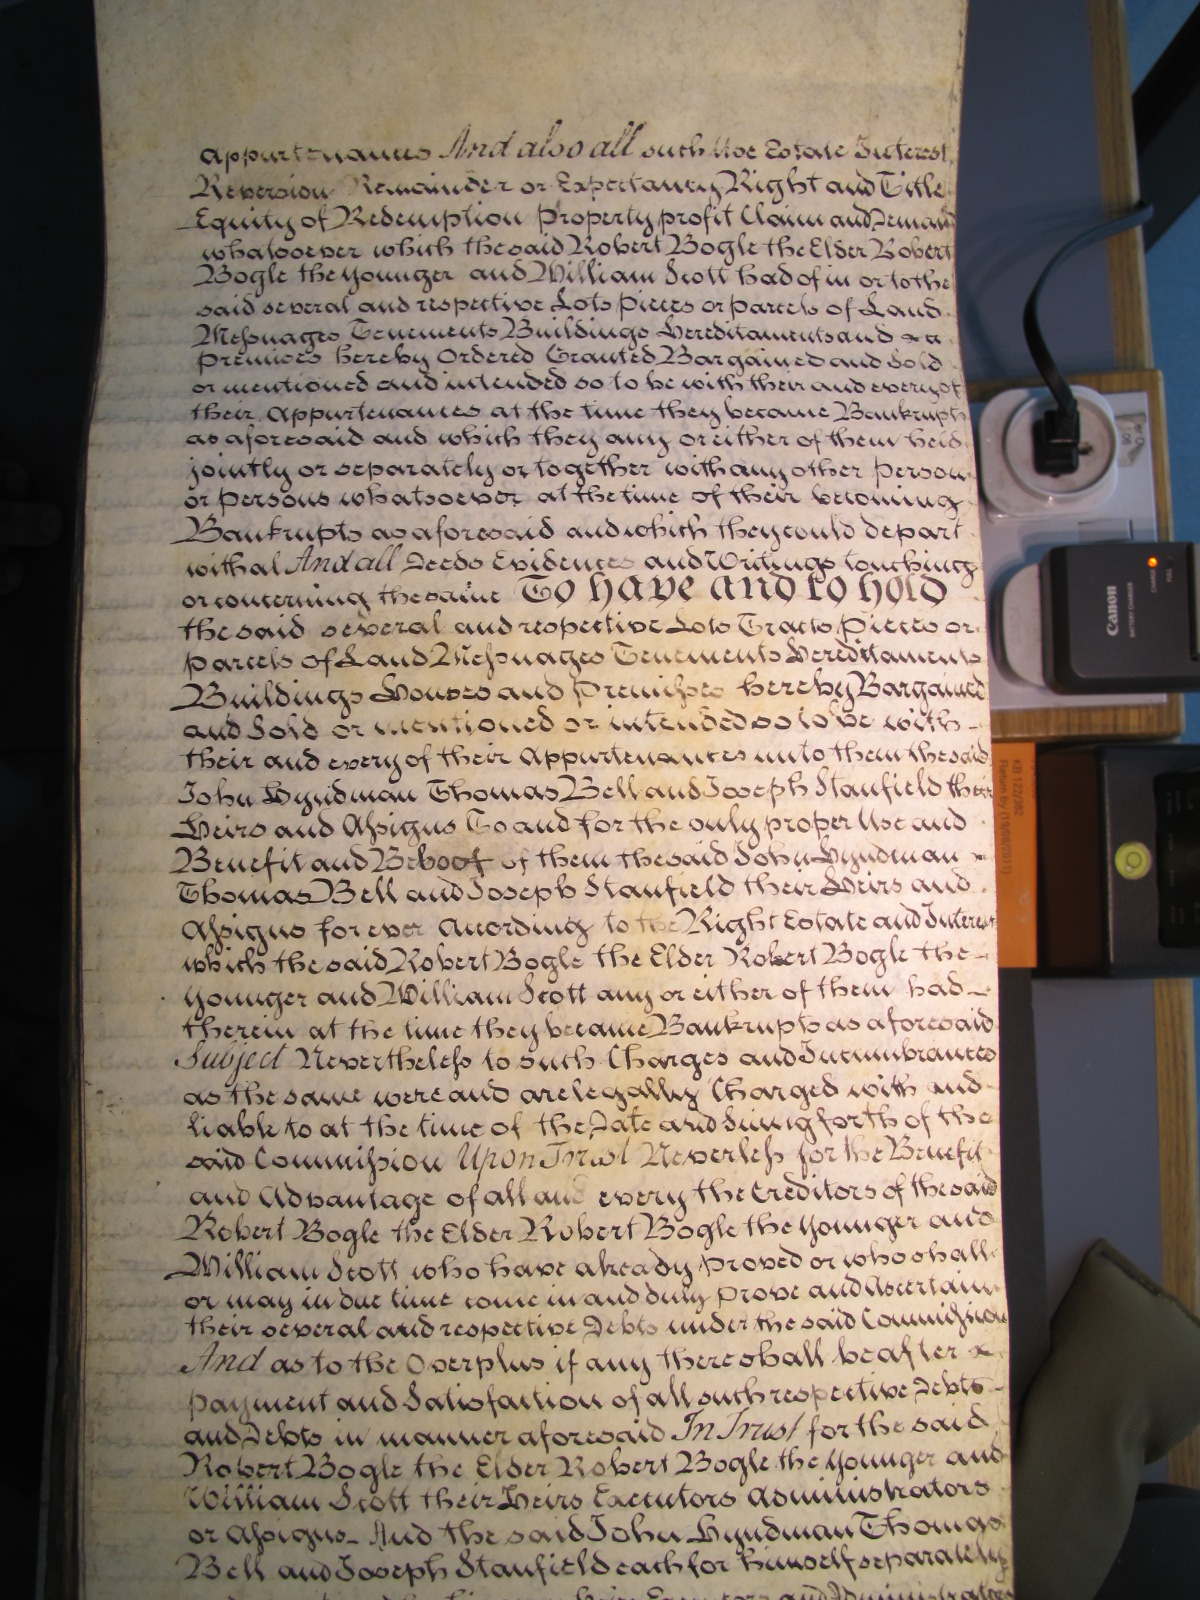 appurtenances And also all such Use Estate Interest
Reversion Remainder or Expectancy Right and Title
Equity of Redemption Property profit Claim and Demand
whatsoever which the said Robert Bogle the Elder Robert
Bogle the younger and William Scott had of in or to the
said several and respective Lots pieces or parcels of Land
Messuages Tenements Buildings Hereditaments and
Premices hereby Ordered Granted Bargained and Sold
or mentioned and intended so to be with their and every of
their Appurtenances at the time they became Bankrupts
as aforesaid and which they any or either of them held
jointly or separately or together with any other Person
or Persons whatsoever at the time of their becoming
Bankrupts as aforesaid and which they could depart
withal And all Deeds Evidences and Writings touching
or concerning the same To have and to hold
the said several and respective Lots Tracts Pieces or
parcels of Land Messuages Tenements Hereditaments
Buildings Houses and Premisses hereby Bargained
and Sold or mentioned or intended so to be with
their and every of their Appurtenances unto them the said
John Hyndman Thomas Bell and Joseph Stanfield their
Heirs and Assigns To and for the only proper Use and
Benefit and Behoof of them the said John Hyndman
Thomas Bell and Joseph Stanfield their Heirs and
Assigns for ever Acording to the Right Estate and Interest
which the said Robert Bogle the Elder Robert Bogle the
younger and William Scott any or either of them had
therein at the time they became Bankrupts as aforesaid
Subject Nevertheless to such Charges and Incumbrances
as the same were and are legally Charged with and
liable to at the time of the Date and Suing forth of the
said Commission Upon Trust Neverless for the Benefit
and Advantage of all and every the Creditors of the said
Robert Bogle the Elder Robert Bogle the younger and
William Scott who have already proved or who shall
or may in due time come in and duly prove and Ascertain
their several and respective Debts under the said Commission
And as to the Overplus if any there shall be after
payment and Satisfaction of all such respective Debts
and Debts in manner aforesaid In Trust for the said
Robert Bogle the Elder Robert Bogle the younger and
William Scott their Heirs Executors Administrators
or Assigns And the said John Hyndman Thomas
Bell and Joseph Stanfield each for himself separately
Heirs Executors and Administrators
Canon
BATTERY CHARGER
CHARGE
FULL
KB 122/382
Return by (15/09/2011)